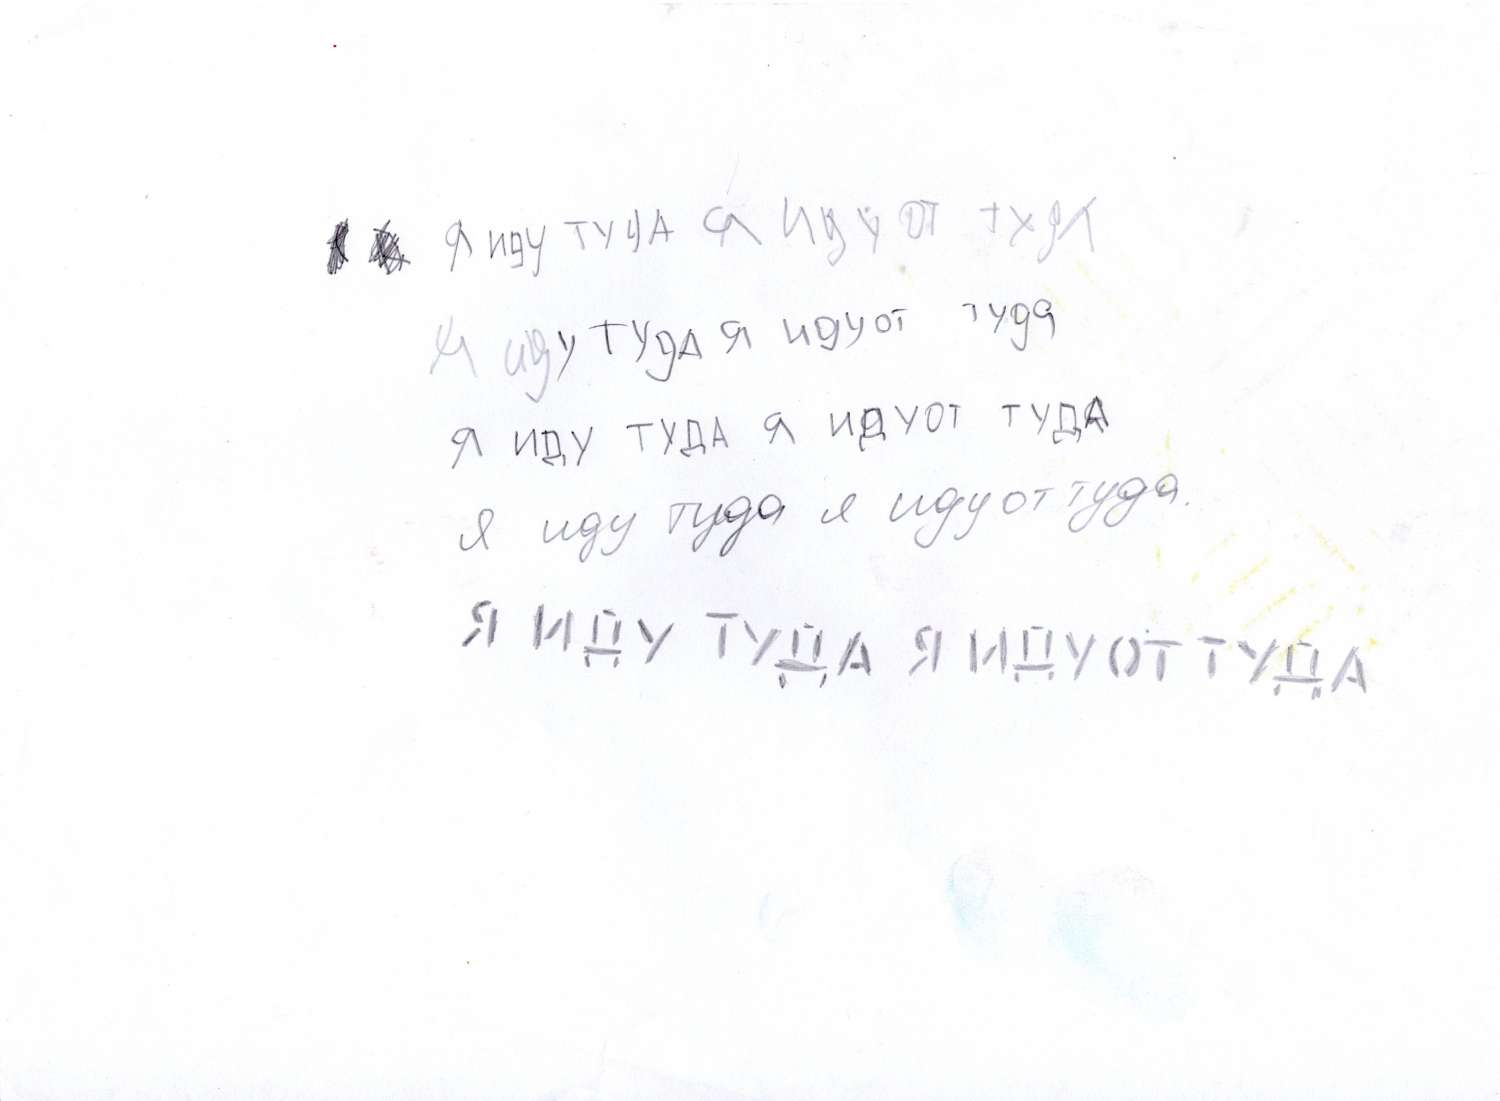 Я иду туда я иду от туда
Я иду туда я иду от туда
Я ИДУ ТУДА Я ИДУ ОТ ТУДА
Я иду туда я иду от туда.
Я ИДУ ТУДА Я ИДУ ОТ ТУДА